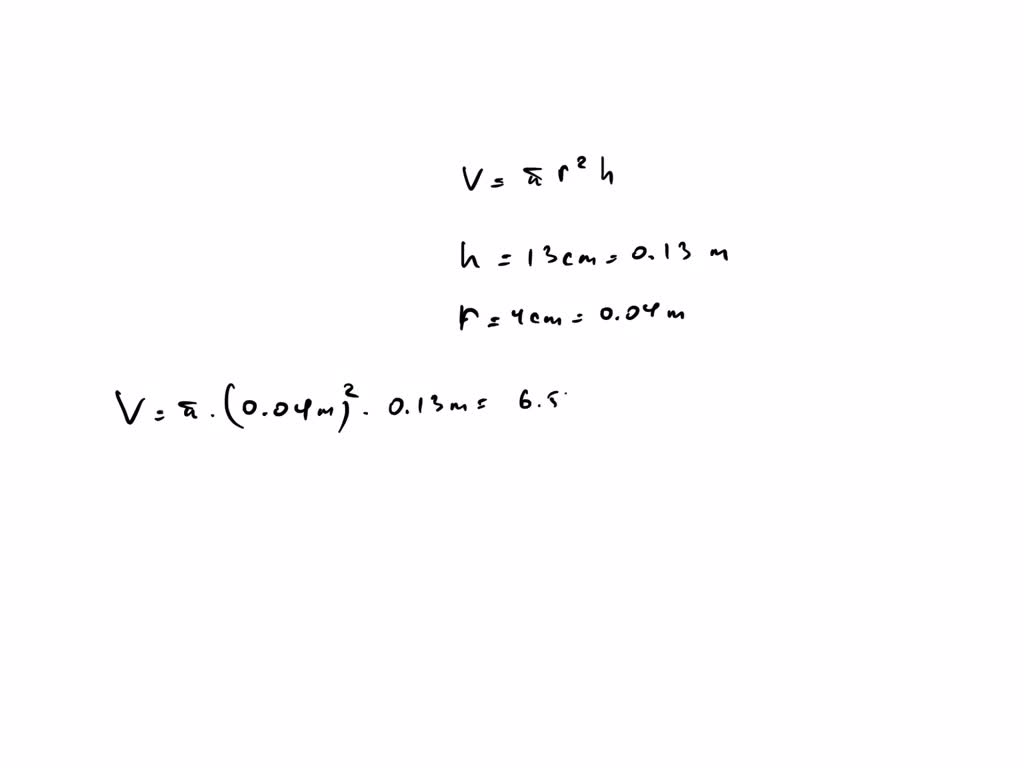 V = π r² h
h = 13cm = 0.13 m
r = 4cm = 0.04 m
V = π . (0.04 m)² . 0.13 m = 6.5